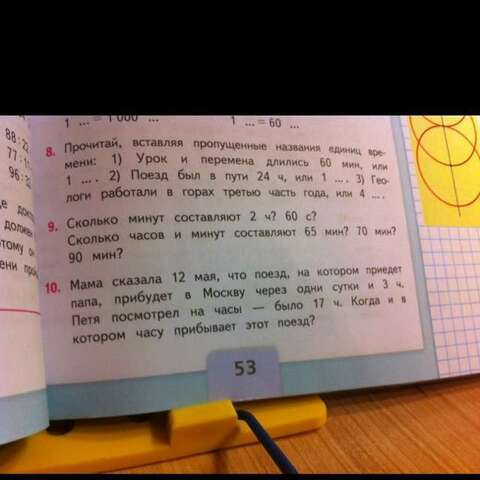 1 ... = 1 000 ...
1 ... = 60 ...
88 : 22
77 : 1
96 : 32
8. Прочитай, вставляя пропущенные названия единиц вре-
мени: 1) Урок и перемена длились 60 мин, или
1 ... . 2) Поезд был в пути 24 ч, или 1 ... . 3) Гео-
логи работали в горах третью часть года, или 4 ... .
9. Сколько минут составляют 2 ч? 60 с?
Сколько часов и минут составляют 65 мин? 70 мин?
90 мин?
10. Мама сказала 12 мая, что поезд, на котором приедет
папа, прибудет в Москву через одни сутки и 3 ч.
Петя посмотрел на часы — было 17 ч. Когда и в
котором часу прибывает этот поезд?
53